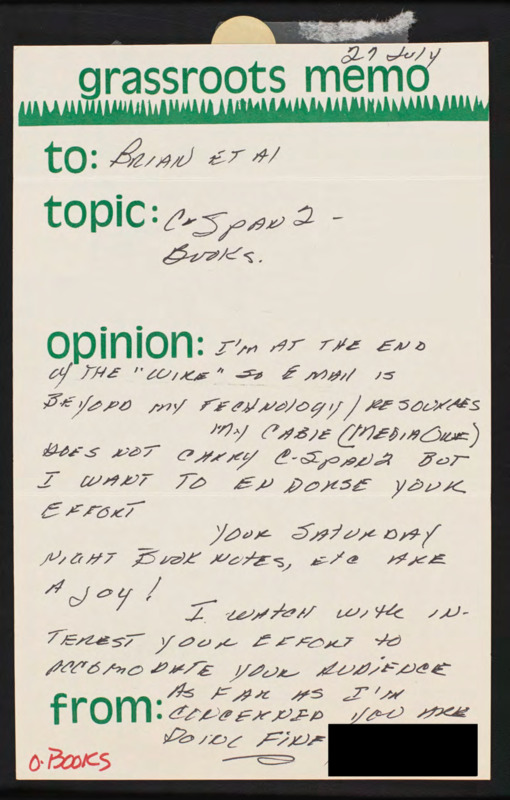 27 July
grassroots memo
to: BRIAN ET Al
topic: C-SPAN 2 -
BOOKS.
opinion: I'M AT THE END
of THE "WIRE" SO E MAIL IS
BEYOND MY TECHNOLOGY/RESOURCES
MY CABLE (MEDIAONE)
DOES NOT CARRY C-SPAN2 BUT
I WANT TO ENDORSE YOUR
EFFORT
YOUR SATURDAY
NIGHT BOOK NOTES, Etc ARE
A JOY!
I WATCH WITH IN-
TEREST YOUR EFFORT TO
ACCOMODATE YOUR AUDIENCE
AS FAR AS I'M
from: CONCERNED YOU ARE
DOING FINE
O-BOOKS